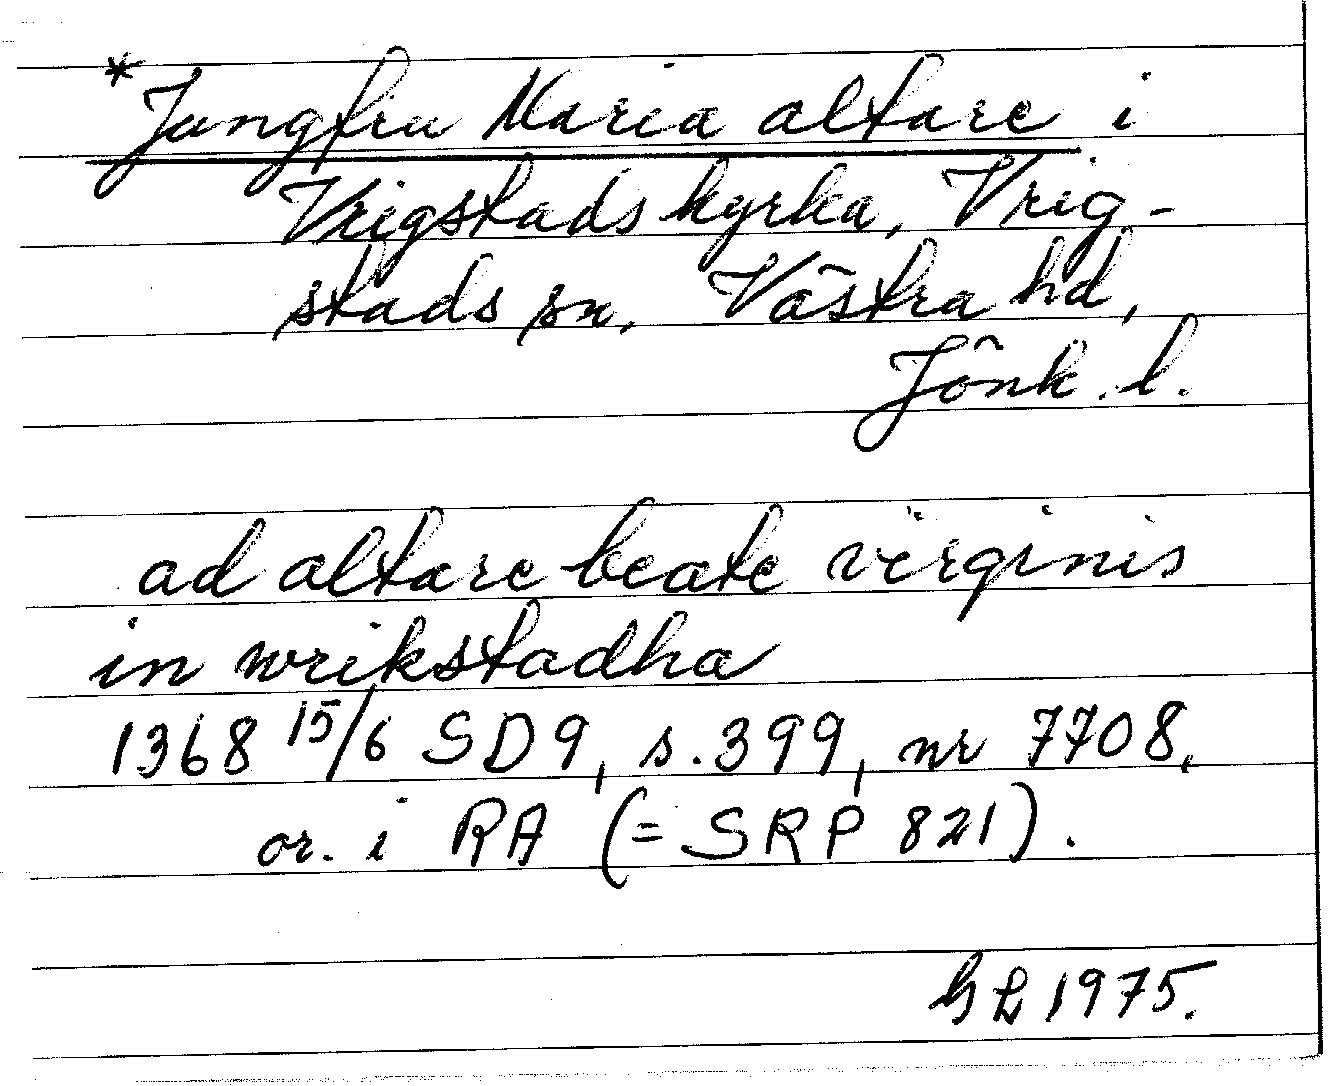 *Jungfru Maria altare i
Vrigstads kyrka, Vrig-
stads sn, Västra hd,
Jönk. l.
ad altare beate virginis
in wrikstadha
1368 15/6 SD9, s. 399, nr 7708,
or. i RA (= SRP 821).
GL 1975.